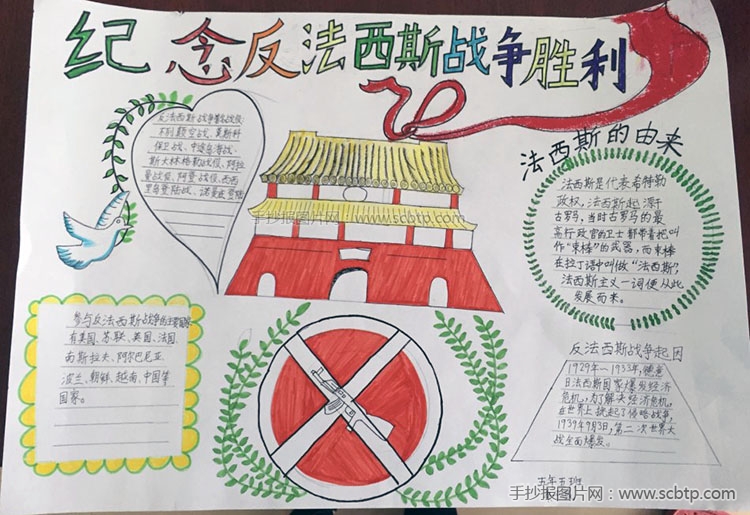 纪念反法西斯战争胜利
反法西斯战争著名战役:
不列颠空战、莫斯科
保卫战、中途岛海战、
斯大林格勒战役、阿拉
曼战役、阿登战役、西西
里岛登陆战、诺曼底登陆
手抄报图片网:www.scbtp.com
法西斯的由来
法西斯是代表希特勒
政权,法西斯起源于
古罗马,当时古罗马的最
高行政官的卫士都带着把叫
作“束棒”的武器,而束棒
在拉丁语中叫做“法西斯”,
法西斯主义一词便从此
发展而来。
参与反法西斯战争的主要国家
有美国、苏联、英国、法国、
南斯拉夫、阿尔巴尼亚、
波兰、朝鲜、越南、中国等
国家。
反法西斯战争起因
1929年—1933年,德意
日法西斯国家爆发经济
危机,为了解决经济危机,
在世界上挑起了侵略战争,
1939年9月3日,第二次世界大
战全面爆发。
五年五班
手抄报图片网:www.scbtp.com